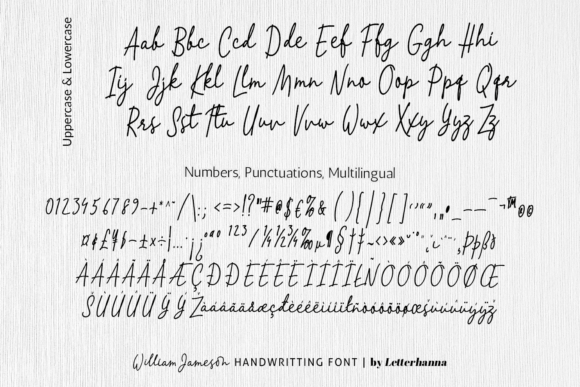 Uppercase & Lowercase
Aab Bbc Ccd Dde Eef Ffg Ggh Hhi
Iij Jjk Kkl Llm Mmn Nno Oop Ppq Qqr
Rrs Sst Ttu Uuv Vvw Wwx Xxy Yyz Zz
Numbers, Punctuations, Multilingual
0123456789-+*^~ / \ : ; <=>!?"#@$€%& ( ) [ | ] { }
¤¢£¥ƀ-±×÷¦…·¡¿ ºªº ¹²³ / ¼½¾‰µ¶§†‡~‹›«» Þþßð
ÀÁÂÃÄÅÆÇÐĐÈÉÊËÌÍÎÏŁÑÒÓÔÕÖØŒ
ŠÙÚÛÜŸÝŽàáâãäåæçđèéêëìíîïłñòóôõöøœšùúûüÿýž
William Jameson HANDWRITTING FONT | by Letterhanna